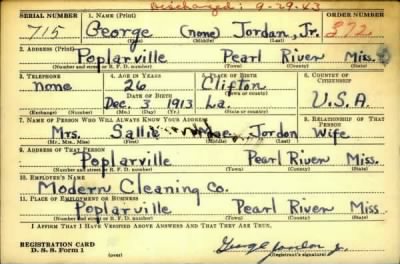 Discharged: 9-29-43
SERIAL NUMBER 1. NAME (Print) ORDER NUMBER
715 George (none) Jordan, Jr. 372
(First) (Middle) (Last)
2. ADDRESS (Print)
Poplarville Pearl River Miss.
(Number and street or R. F. D. number) (Town) (County) (State)
3. TELEPHONE 4. AGE IN YEARS 5. PLACE OF BIRTH 6. COUNTRY OF CITIZENSHIP
none 26 Clifton
DATE OF BIRTH (Town or county)
Dec. 3 1913 La. U.S.A.
(Exchange) (Number) (Mo.) (Day) (Yr.) (State or country)
7. NAME OF PERSON WHO WILL ALWAYS KNOW YOUR ADDRESS 8. RELATIONSHIP OF THAT PERSON
Mrs. Sallie Mae Jordon Wife
(Mr., Mrs., Miss) (First) (Middle) (Last)
9. ADDRESS OF THAT PERSON
Poplarville Pearl River Miss.
(Number and street or R. F. D. number) (Town) (County) (State)
10. EMPLOYER'S NAME
Modern Cleaning Co.
11. PLACE OF EMPLOYMENT OR BUSINESS
Poplarville Pearl River Miss
(Number and street or R. F. D. number) (Town) (County) (State)
I AFFIRM THAT I HAVE VERIFIED ABOVE ANSWERS AND THAT THEY ARE TRUE.
REGISTRATION CARD
D. S. S. Form 1 George Jordon Jr.
(over) (Registrant's signature)